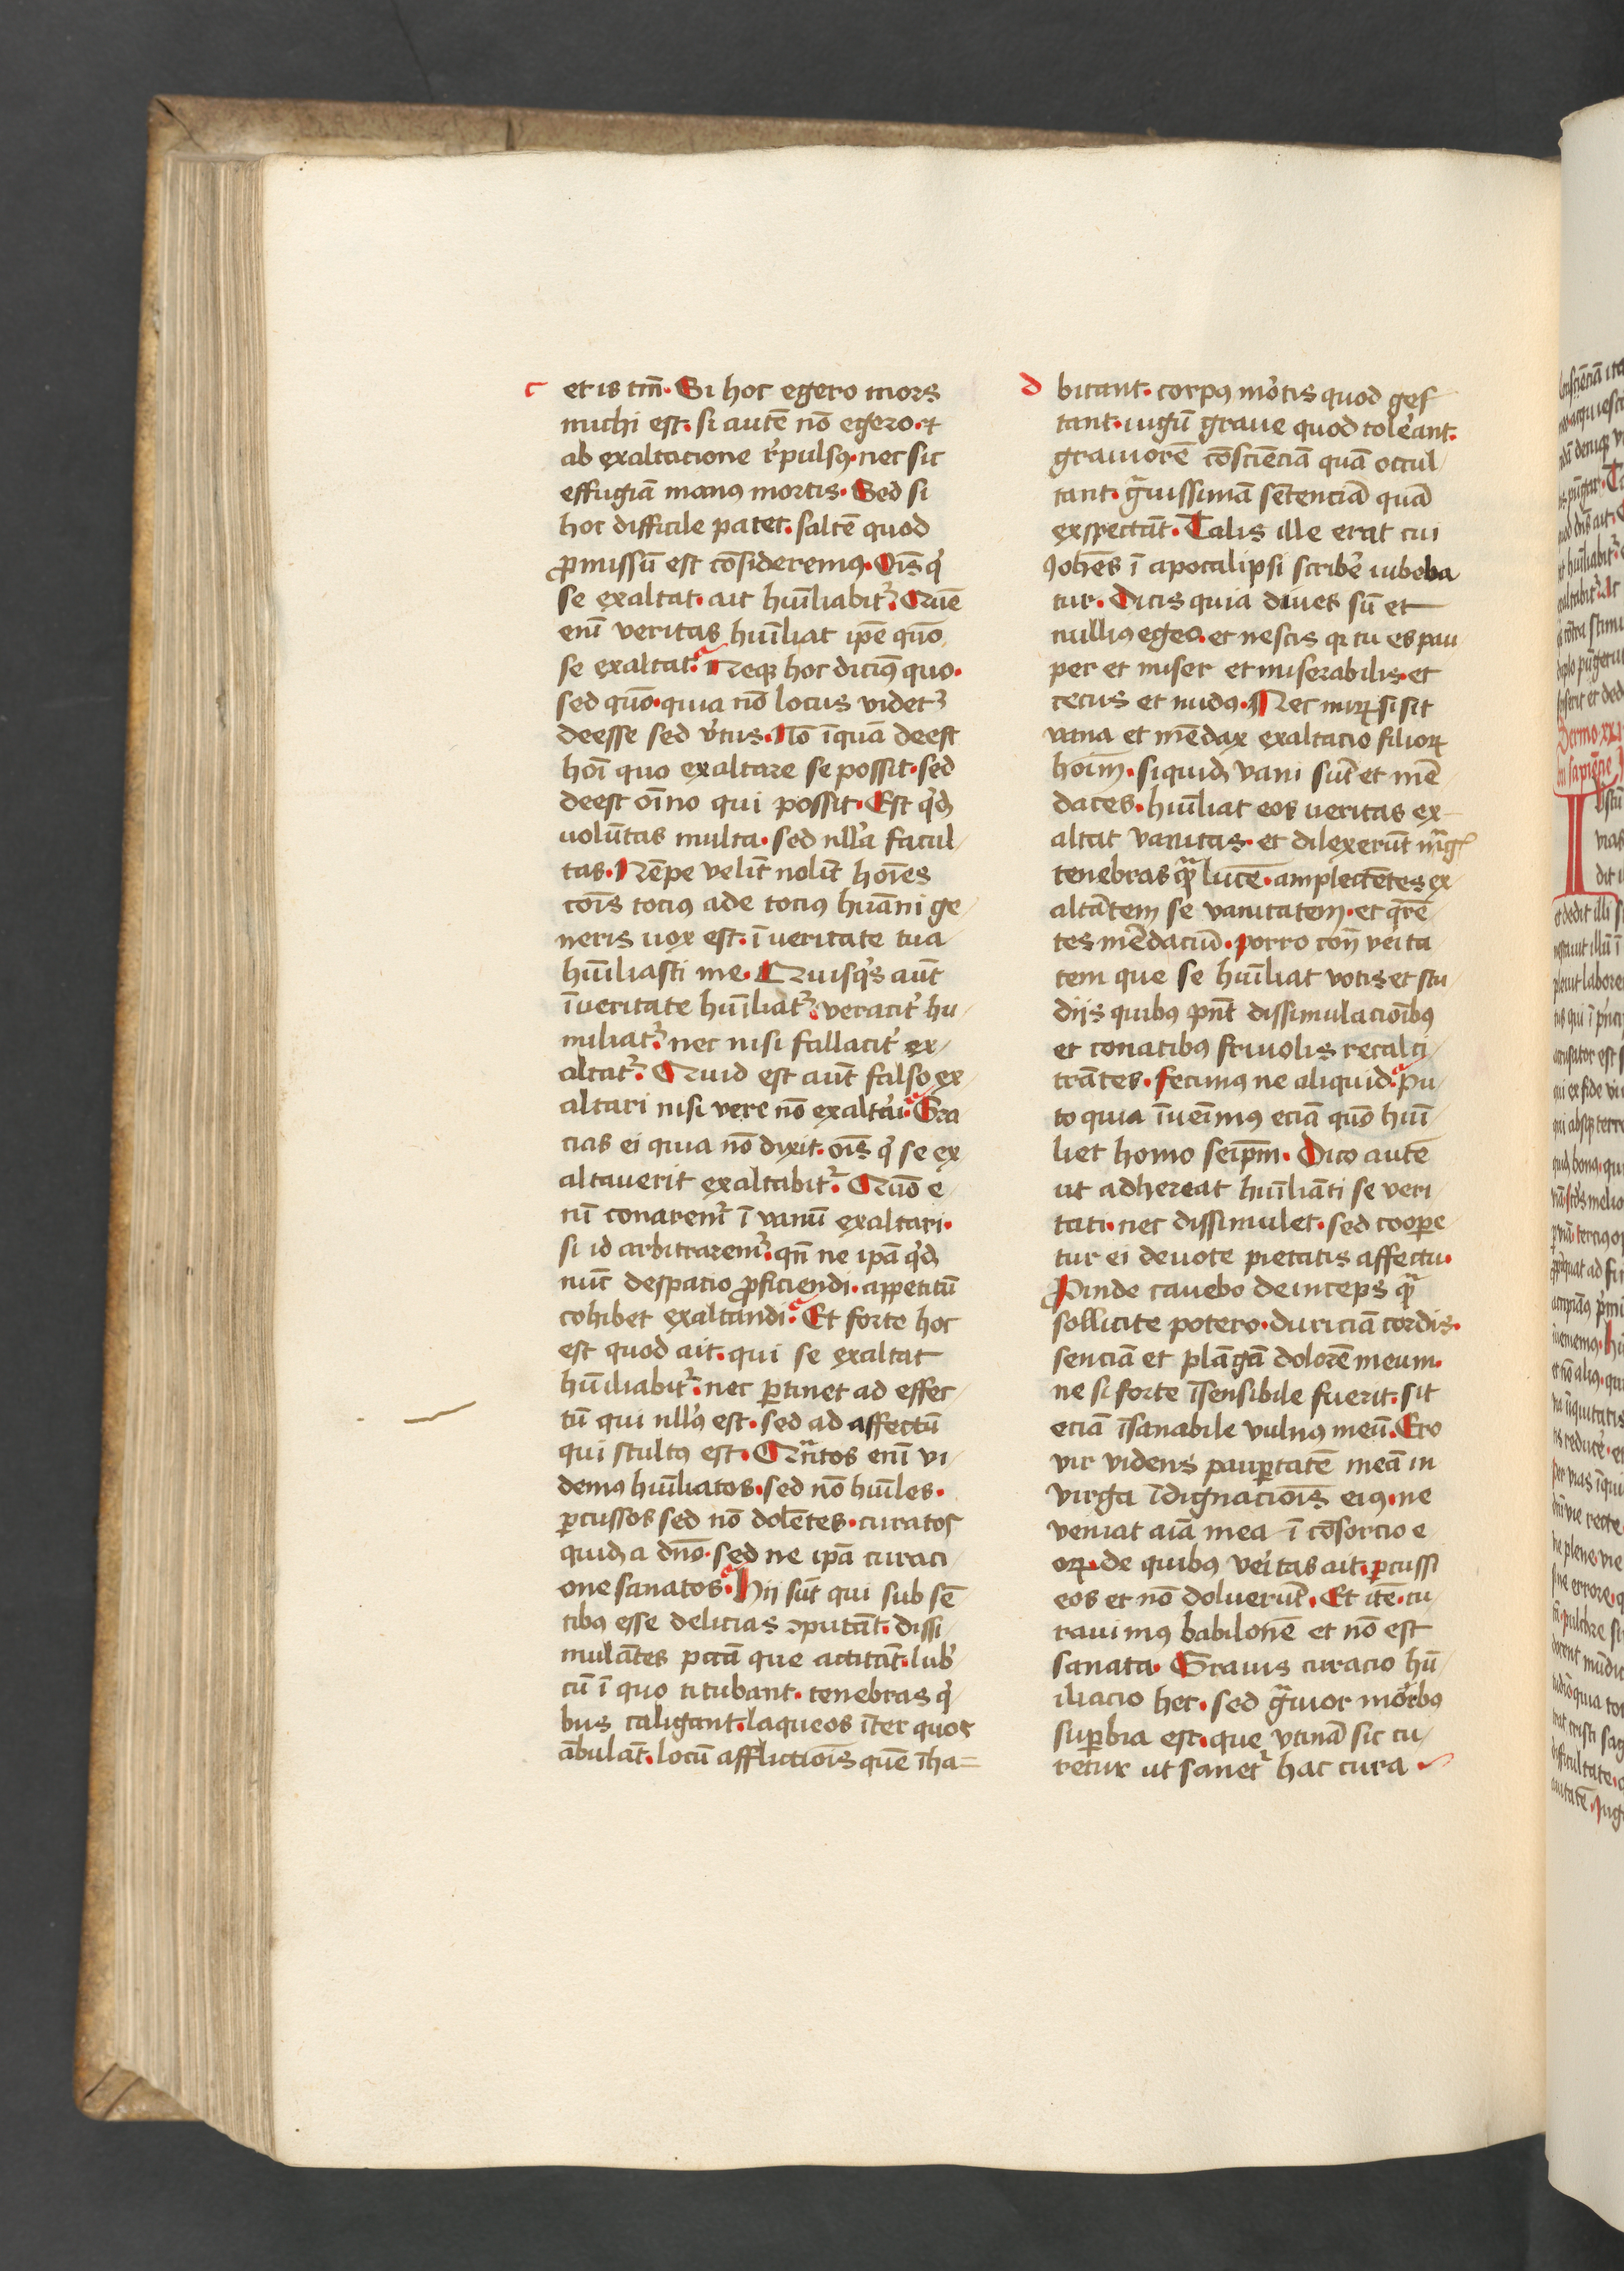 c
et is tm̄. Si hoc egero mors
michi est. si autē nō egero. et
ab exaltacione r̓pulsꝰ. nec sic
effugiā manꝰ mortis. Sed si
hoc difficile patet. saltē quod
ꝓmissū est cōsideremꝰ. Oīs q̓
se exaltat. ait hūiliabit᷑. Quē
enī veritas hūiliat ipē quō
se exaltat. Neqꝫ hoc dicimꝰ quo.
sed quō. quia nō locus videt᷑
deesse sed v̓tus. Nō īquā deest
hoī quo exaltare se possit. sed
deest oīno qui possit. Est q̓dē
volūtas multa. sed nll̓a facul
tas. Nēpe velīt nolīt hoīes
cōis tociꝰ ade tociꝰ huāni ge
neris vox est. ī veritate tua
hūiliasti me. Quisq̓s aūt
ī veritate hūiliat᷑. veracit̓ hu
miliat᷑. nec nisi fallacit̓ ex
altat᷑. Quid est aūt falso ex
altari nisi vere nō exaltari. Gra
cias ei quia nō dixit. oīs q̓ se ex
altauerit exaltabit᷑. Quō e
nī conarem᷑ ī vanū exaltari.
si id arbitrarem᷑. qn̄ ne ipā q̓dē
nūc despacio ꝓficiendi. appetitū
cohibet exaltandi. Et forte hoc
est quod ait. qui se exaltat
hūiliabit᷑. nec ꝑtinet ad effec
tū qui nll̓ꝰ est. sed ad affectū
qui stultꝰ est. Qᷓntos enī vi
demꝰ hūiliatos. sed nō hūiles.
ꝑcussos sed nō dolētes. curatos
quidē a dn̄o. sed ne ipā curaci
one sanatos. Hij sūt qui sub sē
tibꝰ esse delicias ꝯputāt. dissi
mulātes pctā que actitāt. lub̓
cū ī quo titubant. tenebras q̓
bus caligant. laqueos īter quos
ābulāt. locū afflictiōis quē īha=
d
bitant. corpꝰ mo̓tis quod ges
tant. iugū graue quod tole̓ant.
grauiorē cōsciēciā quā occul
tant. gᷓuissimā sētenciā quā
exspectāt. Talis ille erat cui
Iohēs ī apocalipsi scribe̓ iubeba
tur. Dicis quia diues sū et
nulliꝰ egeo. et nescis qꝛ tu es pau
per et miser et miserabilis. et
cecus et nudꝰ. Nec mirꝝ si sit
vana et mēdax exaltacio filioꝝ
hoīm. siquidē vani sūt et mē
daces. hūiliat eos veritas ex
altat vanitas. et dilexerūt mᷓg̓
tenebras qᷓꝫ lucē. amplectētes ex
altātem se vanitatem. et q̄rē
tes mēdaciū. Porro con̄ ve̓ita
tem que se hūiliat votis et stu
dijs quibꝰ pn̄t dissimulaciōibꝰ
et conatibꝰ friuolis recalci
trātes. fecimꝰ ne aliquid. Pu
to quia īueīmꝰ eciā quō hūi
liet homo seipm̄. Dico autē
ut adhereat hūiliāti se veri
tati. nec dissimulet. sed cooꝑe
tur ei deuote pietatis affectu.
Proinde cauebo deinceps qᷓ
sollicite potero. duriciā cordis.
senciā et plāgā dolorē meum.
ne si forte īsensibile fuerit. sit
eciā īsanabile vulnꝰ meū. Ero
vir videns pauꝑtatē meā in
virga īdignaciōis eiꝰ. ne
veniat aīa mea ī cōsorcio e
oꝝ. de quibꝰ ve̓itas ait. ꝑcussi
eos et nō doluerūt. Et itē. cu
rauimꝰ babilonē et nō est
sanata. Grauis curacio hūi
iliacio hec. sed gᷓuior morbꝰ
suꝑbia est. que vtinā sic cu
retur ut sanet᷑ hac cura